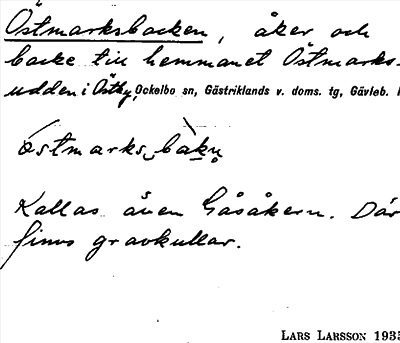 Östmarksbacken, åker och
backe till hemmanet Östmarks-
udden i Östby, Ockelbo sn, Gästriklands v. doms. tg, Gävleb. l
Kallas även Gåsåkern. Där
finns gravkullar.
LARS LARSSON 1935